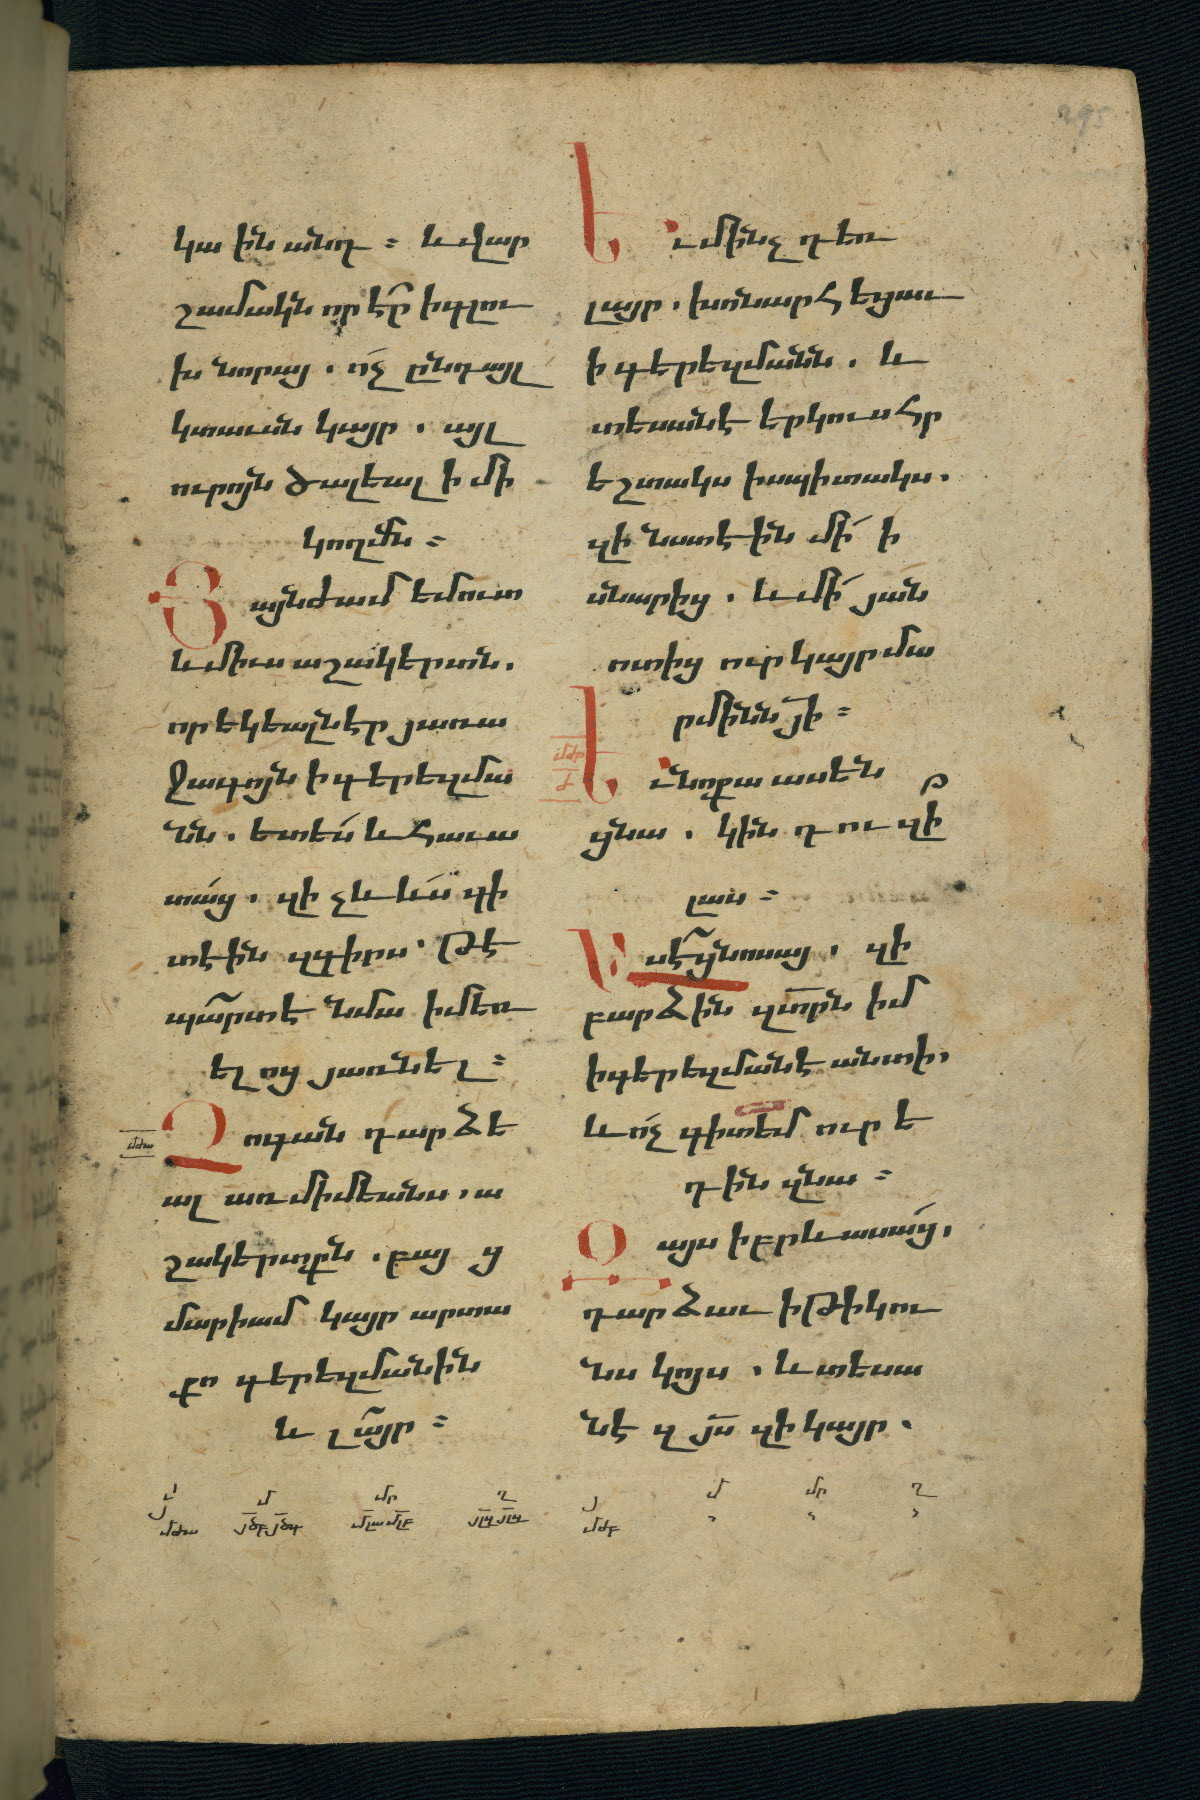 կա ին անդ ։ և վար
շամակն որ էր̃ ի գլու
խ նորա յ . ո՛չ ընդ այլ
կտաւսն կայր . այլ
ուրոյն ծալեալ ի մի
կողմն ։
Յայնժամ եմուտ
և միւս աշակերտն .
որ եկեալն էր յառա
ջագոյն ի գերեզմա
նն . ետես և հաւա
տաց . զի չև ևս գի
տէին զգիրս . թէ
պա̃րտ է նմա ի մեռ
ելոց յառնել ։
Չոգան դարձե
ալ առ միմեանս , ա
շակերտքն . բայց
մարիամ կայր արտա
քո գերեզմանին
և լայր ։
Եւ մինչ դեռ
լայր . խոնարհեցաւ
ի գերեզմանն . և
տեսանէ երկուս հր
եշտակս ի սպիտակս .
զի նստէին մի՛ ի
սնարից . և մի՛ յան
ոտից ուր կայր մա
րմինն յ̃ի ։
Եւ նոքա ասեն
ցնա . կին դու զի
լաս ։
Ասէ ցնոսա , զի
բարձին զտ̃րն իմ
ի գերեզմանէ անտի ,
և ո՛չ գիտեմ ուր ե
դին զնա ։
Օայս իբրև ասաց ,
դարձաւ ի թիկու
նս կոյս . և տեսա
նէ զյ̃ս զի կայր .